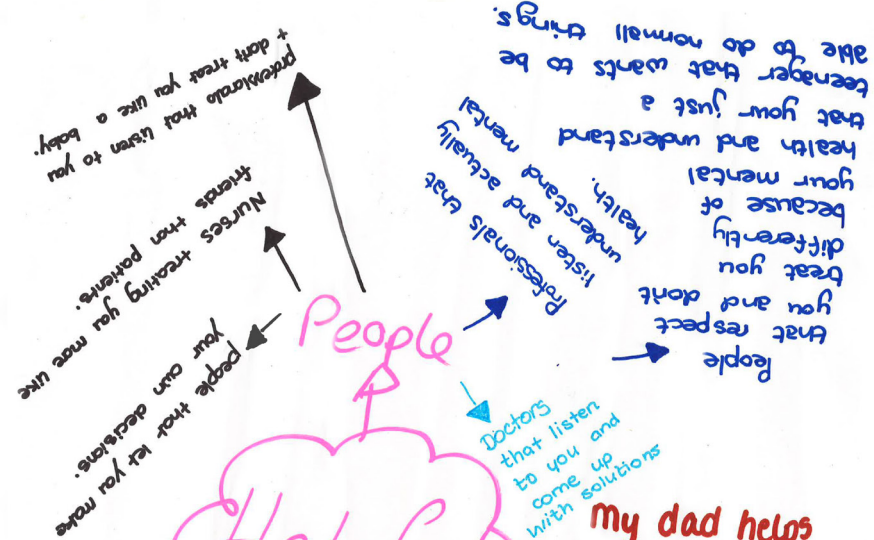 professionals that listen to you
+ don't treat you like a baby.
Nurses treating you more like
friends than patients.
people that let you make
your own decisions.
People
Professionals that
listen and actually
understand mental
health.
People
that respect
you and don't
treat you
differently
because of
your mental
health and understand
that your just a
teenager that wants to be
able to do normall things.
Doctors
that listen
to you and
come up
with solutions
My dad helps